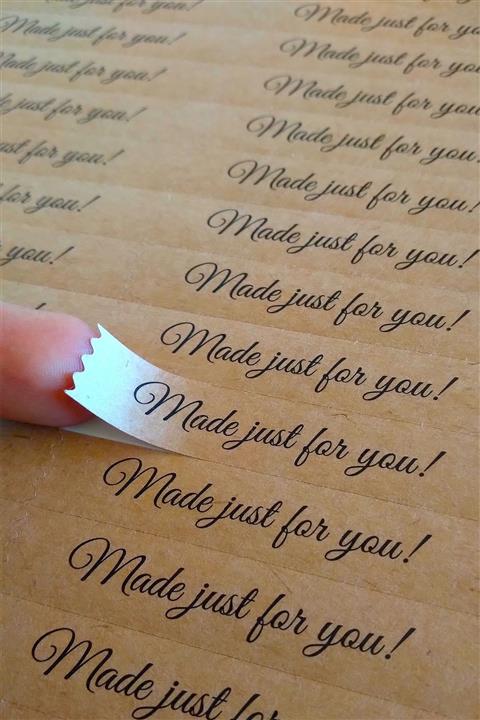 Made just for you!
Made just for you!
Made just for you!
just for you!
just for you!
for you!
you!
Made just for
Made just for you
Made just for you
Made just for you!
Made just for you!
Made just for you!
Made just for you!
Made just for you!
Made just for you!
Made just for you!
Made just for you!
Made just for